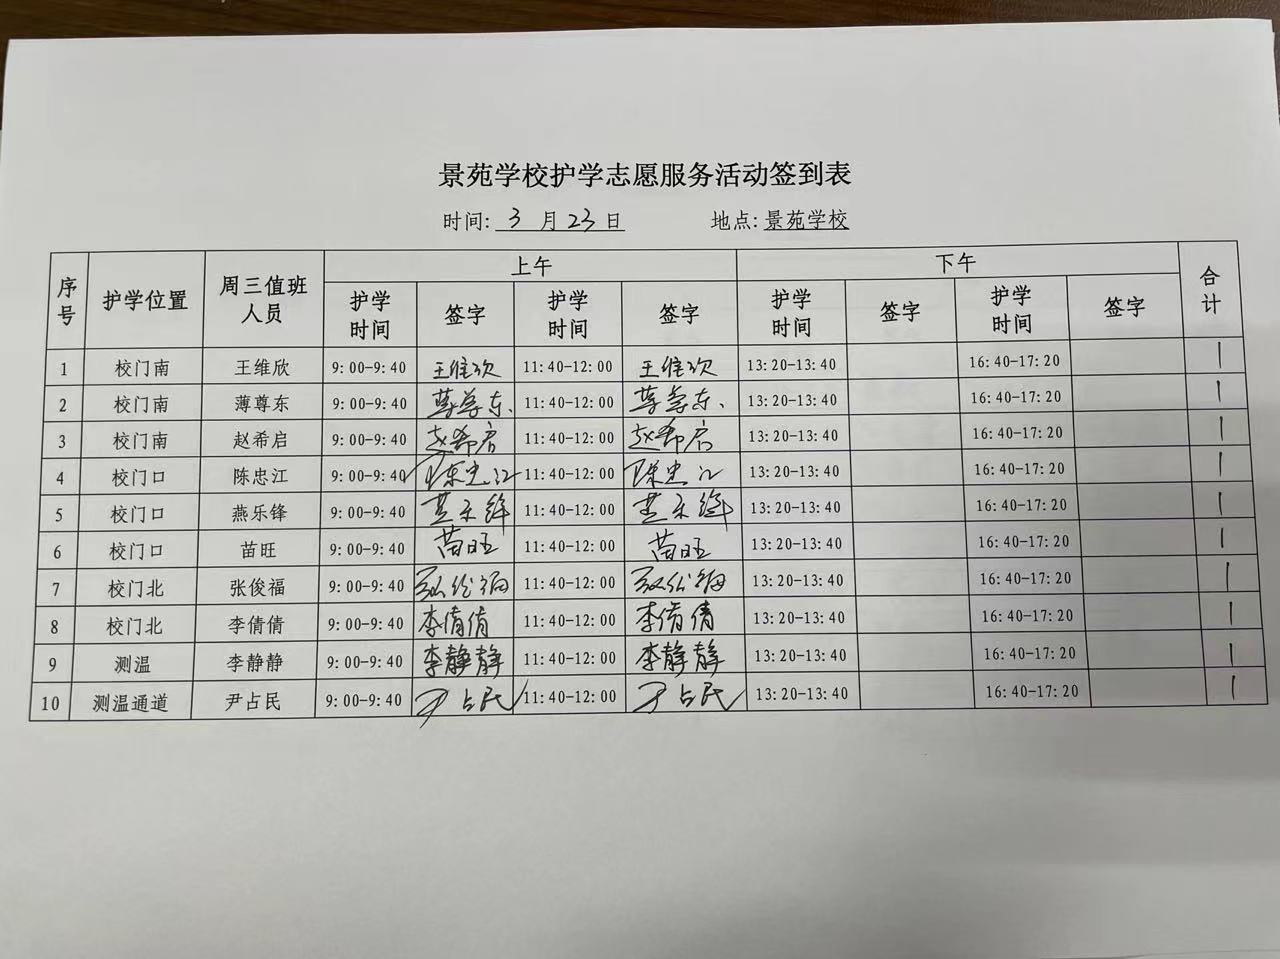 景苑学校护学志愿服务活动签到表
时间: 3 月 23 日 地点: 景苑学校
序号 护学位置 周三值班人员 上午 下午 合计
护学时间 签字 护学时间 签字 护学时间 签字 护学时间 签字
1 校门南 王维欣 9:00-9:40 王维欣 11:40-12:00 王维欣 13:20-13:40 16:40-17:20 1
2 校门南 薄尊东 9:00-9:40 薄尊东 11:40-12:00 薄尊东 13:20-13:40 16:40-17:20 1
3 校门南 赵希启 9:00-9:40 赵希启 11:40-12:00 赵希启 13:20-13:40 16:40-17:20 1
4 校门口 陈忠江 9:00-9:40 陈忠江 11:40-12:00 陈忠江 13:20-13:40 16:40-17:20 1
5 校门口 燕乐锋 9:00-9:40 燕乐锋 11:40-12:00 燕乐锋 13:20-13:40 16:40-17:20 1
6 校门口 苗旺 9:00-9:40 苗旺 11:40-12:00 苗旺 13:20-13:40 16:40-17:20 1
7 校门北 张俊福 9:00-9:40 张俊福 11:40-12:00 张俊福 13:20-13:40 16:40-17:20 1
8 校门北 李倩倩 9:00-9:40 李倩倩 11:40-12:00 李倩倩 13:20-13:40 16:40-17:20 1
9 测温 李静静 9:00-9:40 李静静 11:40-12:00 李静静 13:20-13:40 16:40-17:20 1
10 测温通道 尹占民 9:00-9:40 尹占民 11:40-12:00 尹占民 13:20-13:40 16:40-17:20 1